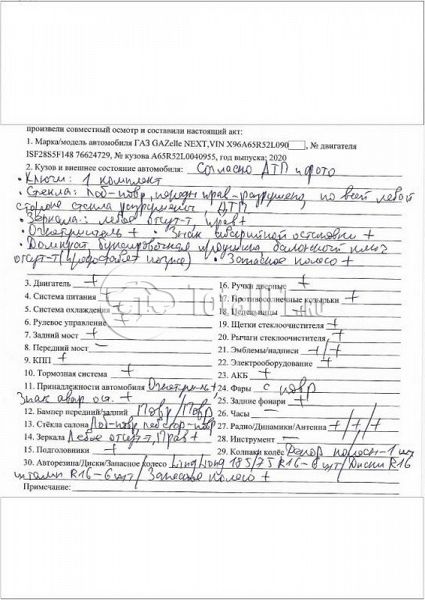 произвели совместный осмотр и составили настоящий акт:
1. Марка/модель автомобиля ГАЗ GAZelle NEXT,VIN X96A65R52L090, № двигателя
ISF28S5F148 76624729, № кузова A65R52L0040955, год выпуска; 2020
2. Кузов и внешнее состояние автомобиля: Согласно ДТП и фото
• Ключи: 1 комплект
• Стекла: Лоб-повр, передн прав-разрушено, по всей левой
стороне стекла ДТП
• Зеркала: левое отсут-т, прав+
• Огнетушитель + Знак аварийной остановки +
• Домкрат, буксировочная проушина, балонный ключ
отсут-т • Запасное колесо +
3. Двигатель +
4. Система питания
5. Система охлаждения
6. Рулевое управление
7. Задний мост +
8. Передний мост –
9. КПП +
10. Тормозная система +
11. Принадлежности автомобиля Огнетуши.+
Знак авар ост. +
12. Бампер передний/задний Повр / Повр
13. Стёкла салона Лоб-повр
14. Зеркала Левое отсут-т, Прав +
15. Подголовники +
16. Ручки дверные +
17. Противосолнечные козырьки +
18. Пепельницы
19. Щетки стеклоочистителя +
20. Рычаги стеклоочистителя +
21. Эмблемы/надписи –/+
22. Электрооборудование +
23. АКБ +
24. Фары с повр
25. Задние фонари +
26. Часы –
27. Радио/Динамики/Антенна +/+/+
28. Инструмент –
29. Колпаки колёс
30. Авторезина/Диски/Запасное колесо LingLong 185/75 R16-6 шт/Диски R16
штамп R16-6 шт/ Запасное колесо +
Примечание: